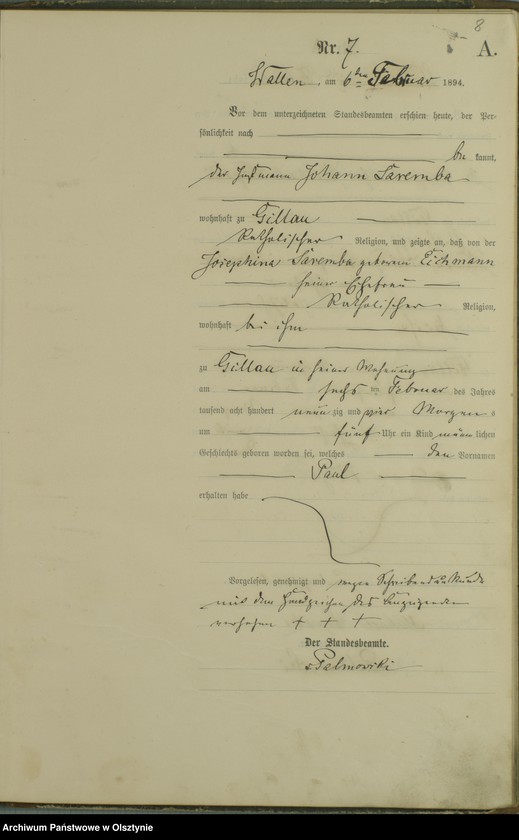 8
Nr. 7. A.
Wallen, am 6ten Februar 1894.
Vor dem unterzeichneten Standesbeamten erschien heute, der Per-
sönlichkeit nach
be kannt,
der Johann Saremba
wohnhaft zu Gillau
Katholischer Religion, und zeigte an, daß von der
Josephina Saremba geborene Eichmann
seiner Ehefrau
Katholischer Religion,
wohnhaft bei ihm
zu Gillau in seiner Wohnung
am sechs ten Februar des Jahres
tausend acht hundert neun zig und vier Morgen s
um fünf Uhr ein Kind männ lichen
Geschlechts geboren worden sei, welches den Vornamen
Paul
erhalten habe
Vorgelesen, genehmigt und wegen Schreibensunkunde
mit dem Handzeichen des Anzeigenden
versehen + + +
Der Standesbeamte.
v. Palmowski
Archiwum Państwowe w Olsztynie